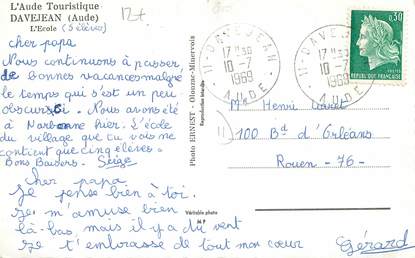 L'Aude Touristique
DAVEJEAN (Aude)
L'Ecole (5 élèves)
12+
cher papa
Nous continuons à passer
de bonnes vacances malgré
le temps qui s'est un peu
obscursi. Nous avons été
à Narbonne hier. L'école
du village que tu vois ne
contient que cinq élèves.
Bons Baisers.
cher papa
Je pense bien à toi.
Je m'amuse bien
là-bas, mais il y a du vent
Je t'embrasse de tout mon cœur
Gérard
Photo ERNEST - Olonne-Minervois
Reproduction inter.
Véritable photo
M P
11 - DAVEJEAN
17H30
10-7
1969
AUDE
11 - DAVEJEAN
17H30
10-7
1969
AUDE
0,30
REPUBLIQUE FRANCAISE
Mr Henri
11
100 Bd d'Orléans
Rouen - 76 -